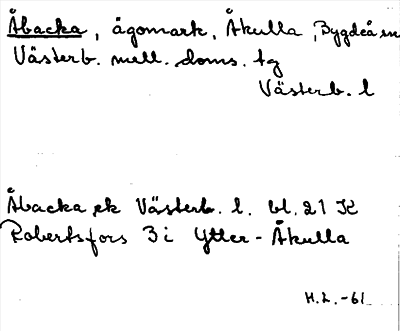 Åbacka, ägomark, Åkulla, Bygdeå sn
Västerb. mell. doms. tg
Västerb. l
Åbacka ek Västerb. l. bl. 21 K
Robertsfors 3 i Ytter-Åkulla
H.L. -61